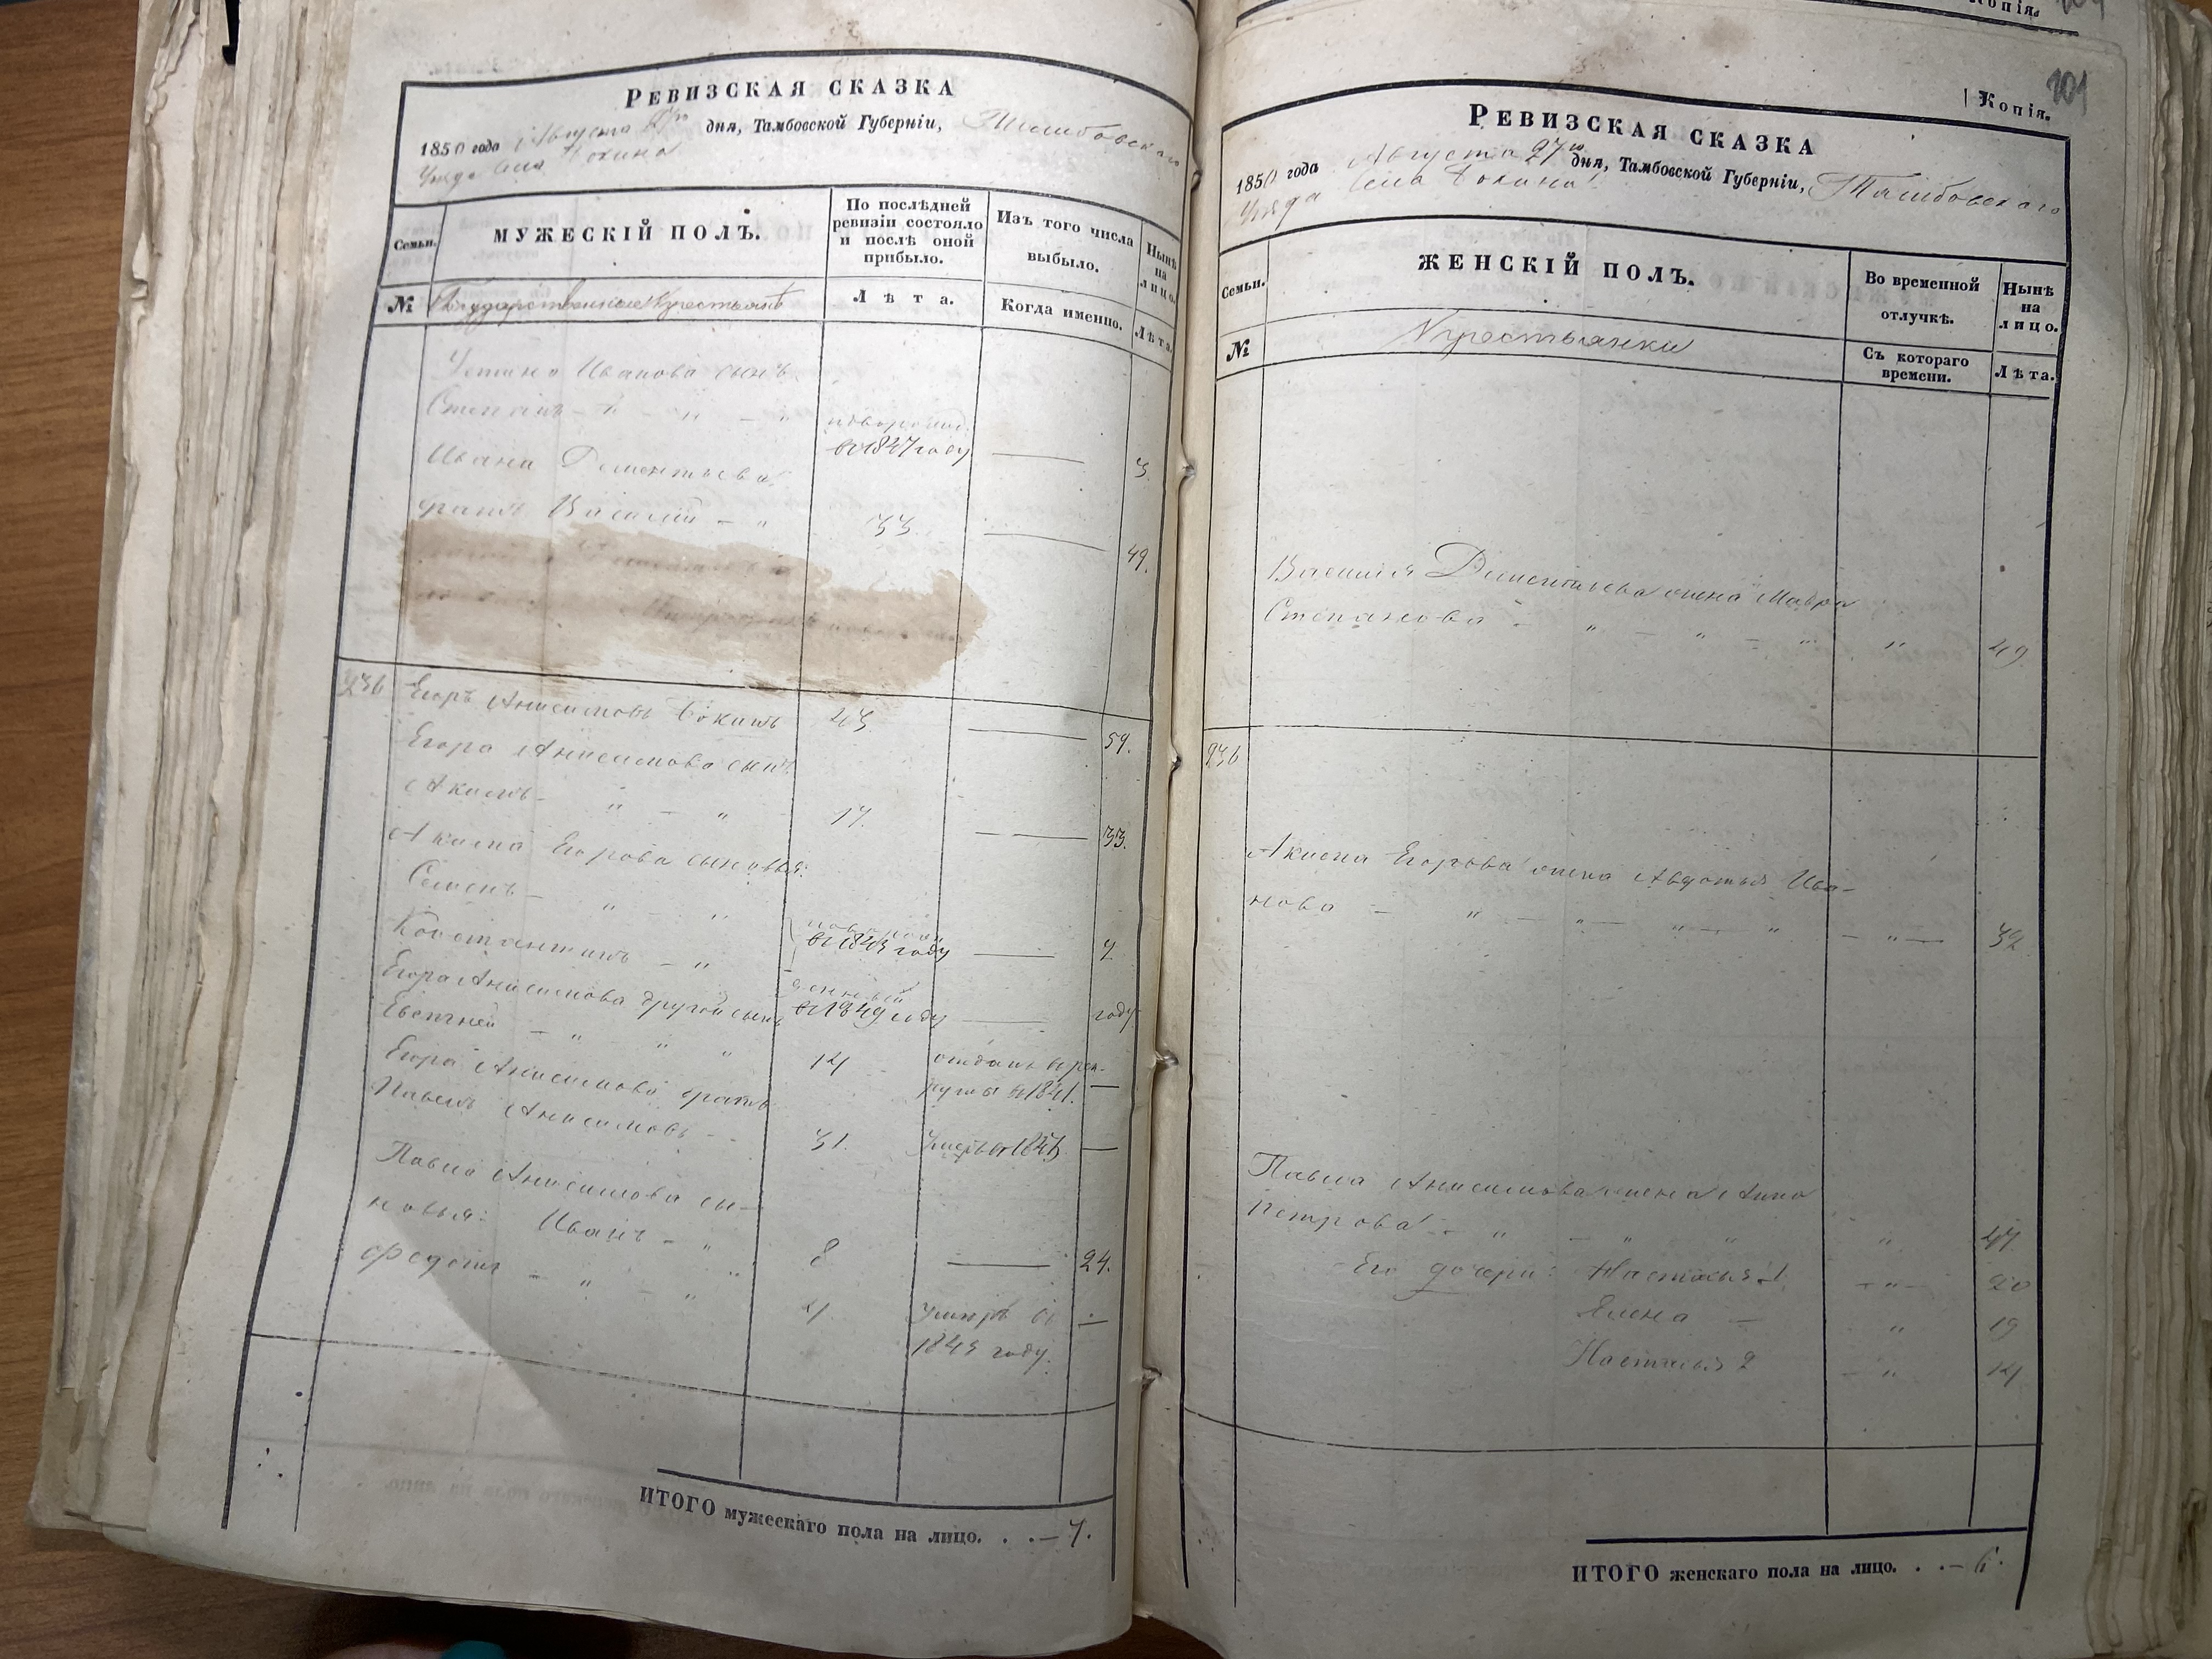 Ревизская сказка
1850 года Августа 27го дня, Тамбовской Губерніи, Тамбовскаго
Уѣзда Села
Семьи.
МУЖЕСКІЙ ПОЛЪ.
По послѣдней ревизіи состояло и послѣ оной прибыло.
Изъ того числа выбыло.
Нынѣ на лицо.
№
Государственные Крестьяне
Лѣта.
Когда именно.
Лѣта.
Устина Иванова сынъ
Степанъ — " — " — " новорожд.
въ 1847 году — 3.
Ивана Дементьева
братъ Василій — " 33 — 49.
236 Егоръ Анисимовъ 43. — 59.
Егора Анисимова сынъ
Акимъ — " — " 17. — — 33.
Акима Егорова сыновья:
Семенъ — " — "
въ 1843 году — 7
Константинъ — "
въ 1849 году — году
Егора Анисимова другой сынъ
Евстигней — " " " 14 отданъ въ рек-
руты въ 1841. —
Егора Анисимова братъ
Павелъ Анисимовъ - - 31. —
Павла Анисимова сы-
новья: Иванъ — " 8 — 24.
Федотъ — " — " 4 умеръ въ —
1843 году.
ИТОГО мужескаго пола на лицо. . . — 7.
Копія.
201
Копія.
Ревизская сказка
1850 года Августа 27го дня, Тамбовской Губерніи, Тамбовскаго
Уѣзда Села
Семьи.
ЖЕНСКІЙ ПОЛЪ.
Во временной отлучкѣ.
Нынѣ на лицо.
№
Крестьянки
Съ котораго времени.
Лѣта.
Василія Дементьева жена Мавра
Степанова — " — " — " " 49
236
Акима Егорова жена Авдотья Ива-
нова — " — " — " — " — " — 32
Павла Анисимова жена Анна
Петрова — " — " " " 47.
Его дочери: Настасья 1 — " — 20
Елена — " 19
Настасья 2 — " 14
ИТОГО женскаго пола на лицо. . . — 6.